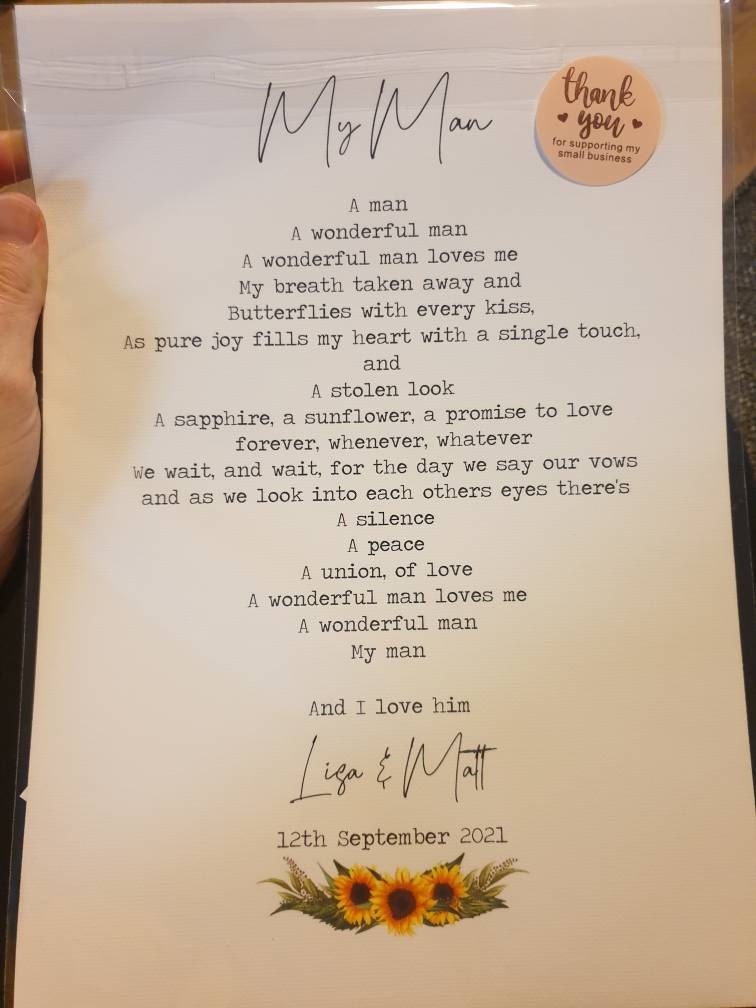 My Man
thank
you
for supporting my
small business
A man
A wonderful man
A wonderful man loves me
My breath taken away and
Butterflies with every kiss,
As pure joy fills my heart with a single touch,
and
A stolen look
A sapphire, a sunflower, a promise to love
forever, whenever, whatever
We wait, and wait, for the day we say our vows
and as we look into each others eyes there's
A silence
A peace
A union, of love
A wonderful man loves me
A wonderful man
My man
And I love him
Lisa & Matt
12th September 2021